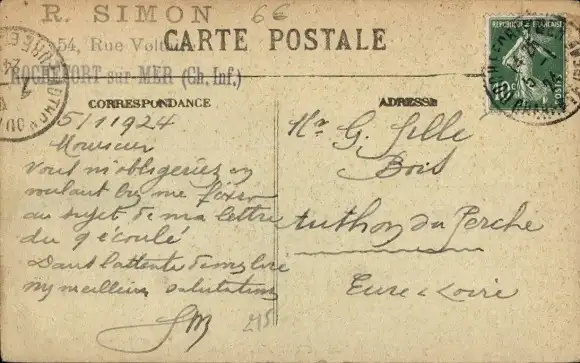 R. SIMON
66
54, Rue Voltaire
CARTE POSTALE
ROCHEFORT-sur-MER (Ch. Inf.)
CORRESPONDANCE
5/11 1924
Monsieur
Vous m'obligeriez en
voulant bien me fixer
au sujet de ma lettre
du 9 écoulé
Dans l'attente de vous lire
mes meilleures salutations
215
ADRESSE
Mr G. Sille
Bois
Authon du Perche
Eure & Loire
REPUBLIQUE FRANÇAISE
POSTES